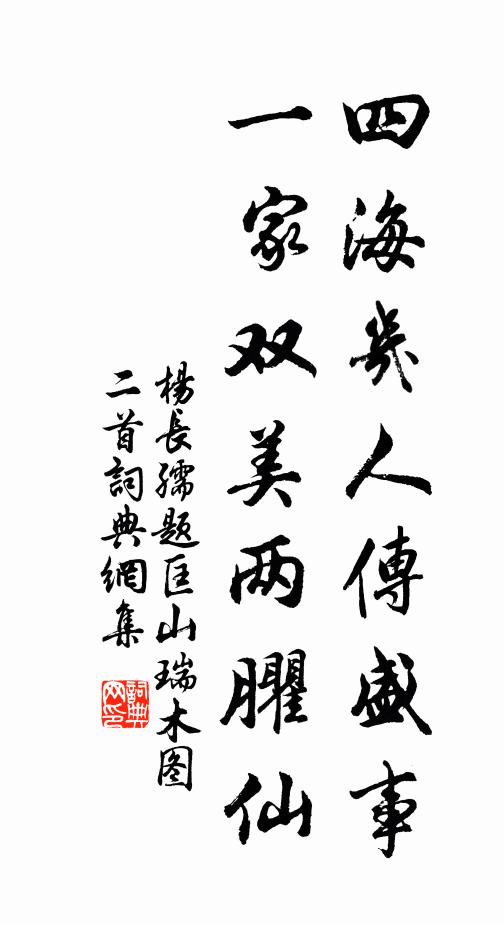 四海幾人傳盛事
一家双美两臞仙
楊長孺题匡山瑞木图
二首詞典網集
詞典
网印